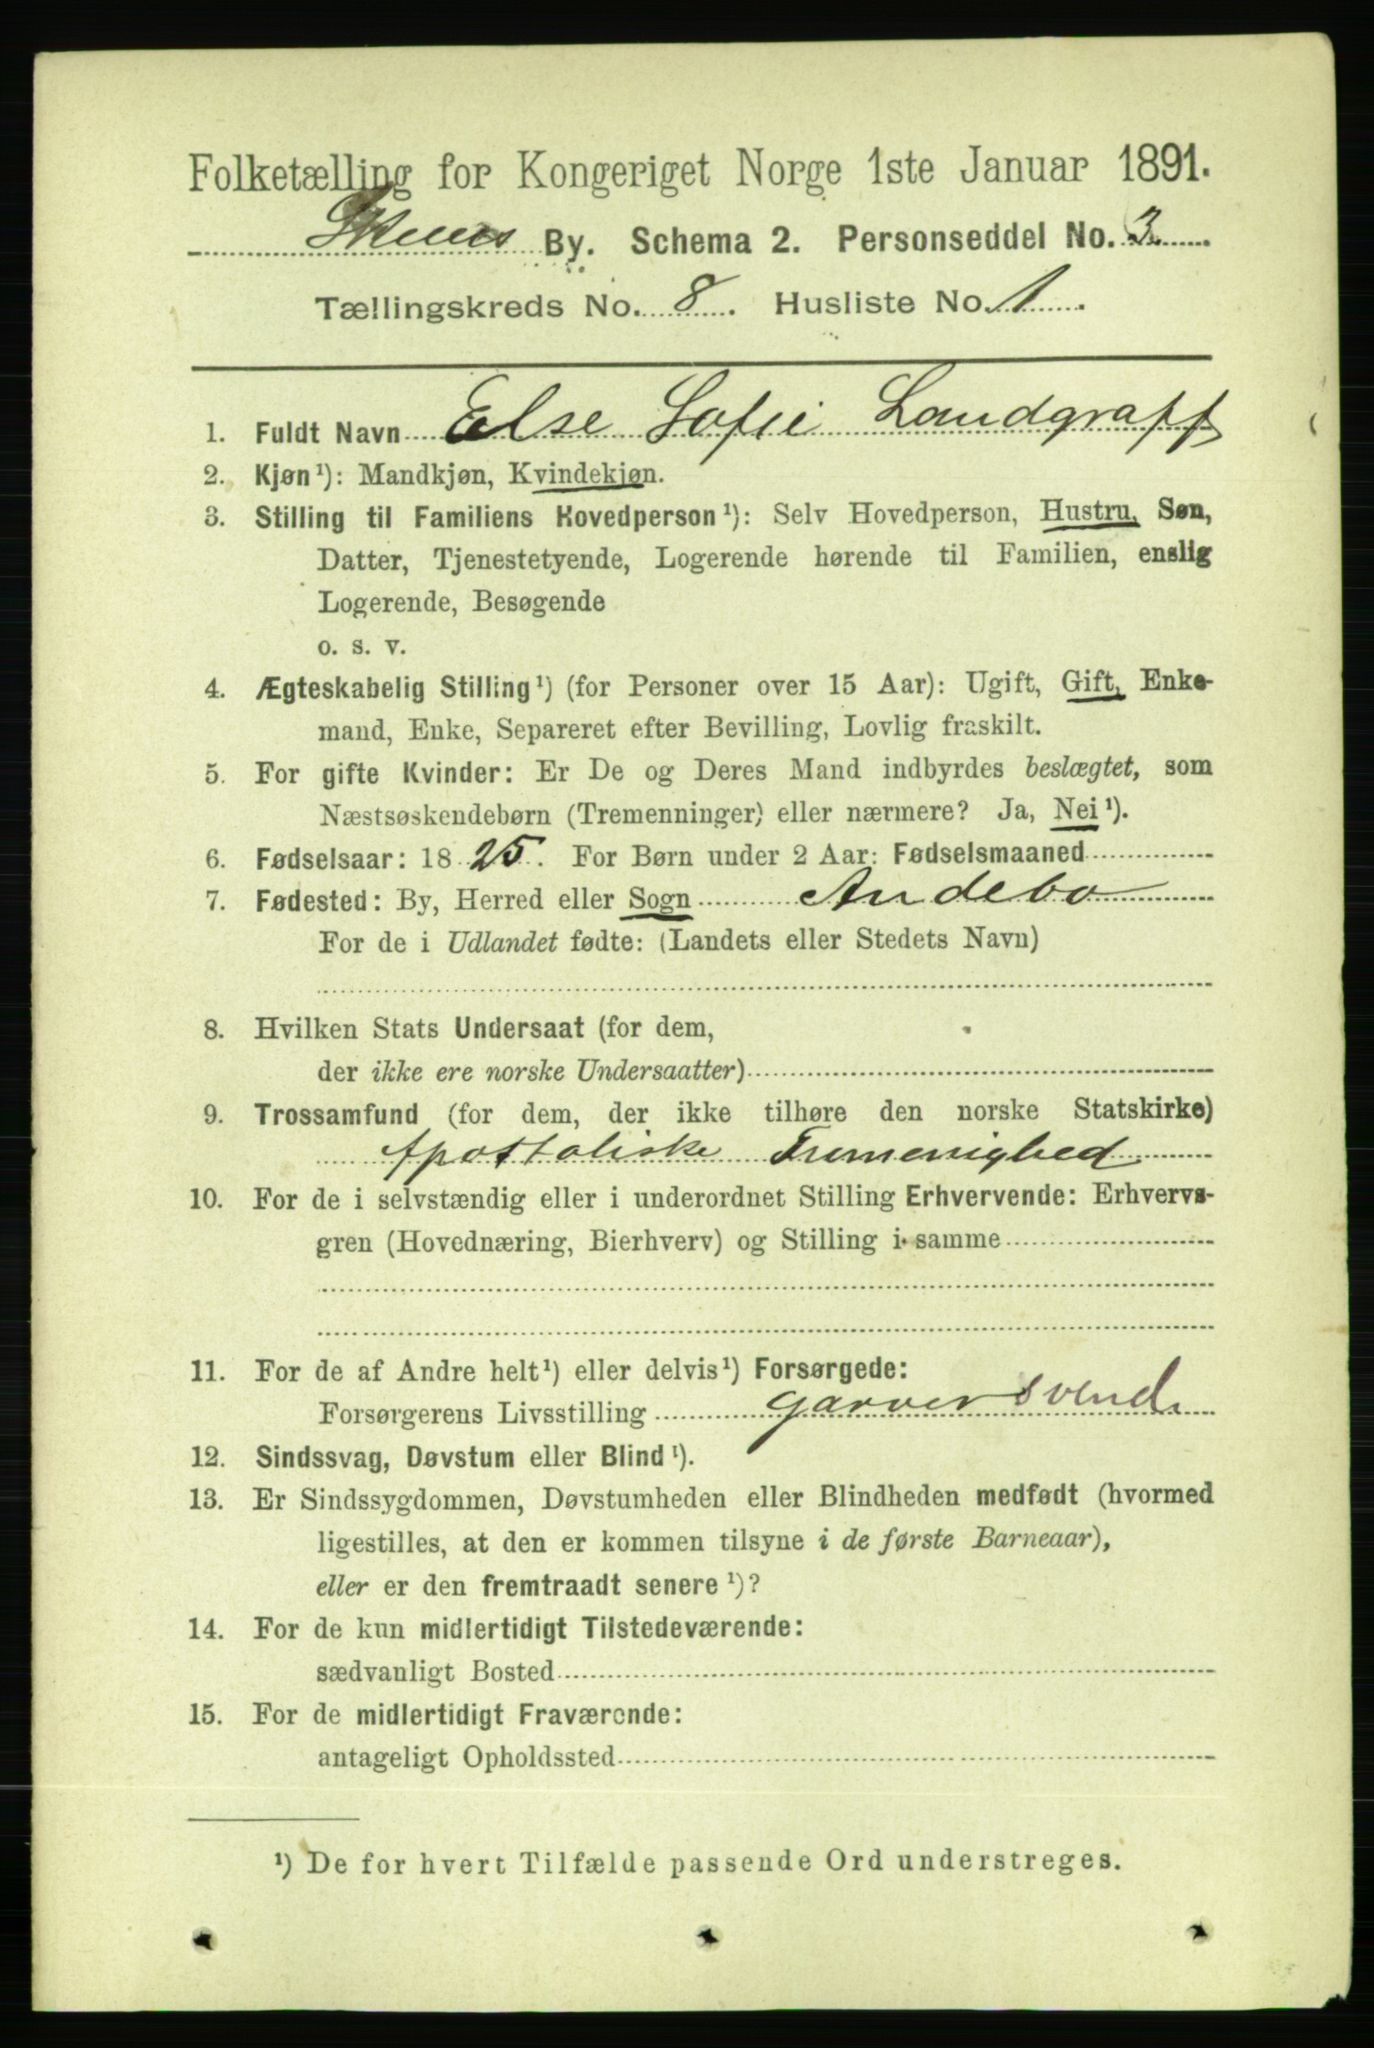 Folketælling for Kongeriget Norge 1ste Januar 1891.
Skiens By. Schema 2. Personseddel No. 3
Tællingskreds No. 8. Husliste No. 1.
1. Fuldt Navn Else Sofie Landgraff
2. Kjøn¹): Mandkjøn, Kvindekjøn.
3. Stilling til Familiens Hovedperson¹): Selv Hovedperson, Hustru, Søn,
Datter, Tjenestetyende, Logerende hørende til Familien, enslig
Logerende, Besøgende
o. s. v.
4. Ægteskabelig Stilling¹) (for Personer over 15 Aar): Ugift, Gift, Enke-
mand, Enke, Separeret efter Bevilling, Lovlig fraskilt.
5. For gifte Kvinder: Er De og Deres Mand indbyrdes beslægtet, som
Næstsøskendebørn (Tremenninger) eller nærmere? Ja, Nei¹).
6. Fødselsaar: 1825. For Børn under 2 Aar: Fødselsmaaned
7. Fødested: By, Herred eller Sogn Andebo
For de i Udlandet fødte: (Landets eller Stedets Navn)
8. Hvilken Stats Undersaat (for dem,
der ikke ere norske Undersaatter)
9. Trossamfund (for dem, der ikke tilhøre den norske Statskirke)
Apostoliske
10. For de i selvstændig eller i underordnet Stilling Erhvervende: Erhvervs-
gren (Hovednæring, Bierhverv) og Stilling i samme
11. For de af Andre helt¹) eller delvis¹) Forsørgede:
Forsørgerens Livsstilling garversvend.
12. Sindssvag, Døvstum eller Blind¹).
13. Er Sindssygdommen, Døvstumheden eller Blindheden medfødt (hvormed
ligestilles, at den er kommen tilsyne i de første Barneaar),
eller er den fremtraadt senere¹)?
14. For de kun midlertidigt Tilstedeværende:
sædvanligt Bosted
15. For de midlertidigt Fraværende:
antageligt Opholdssted
¹) De for hvert Tilfælde passende Ord understreges.